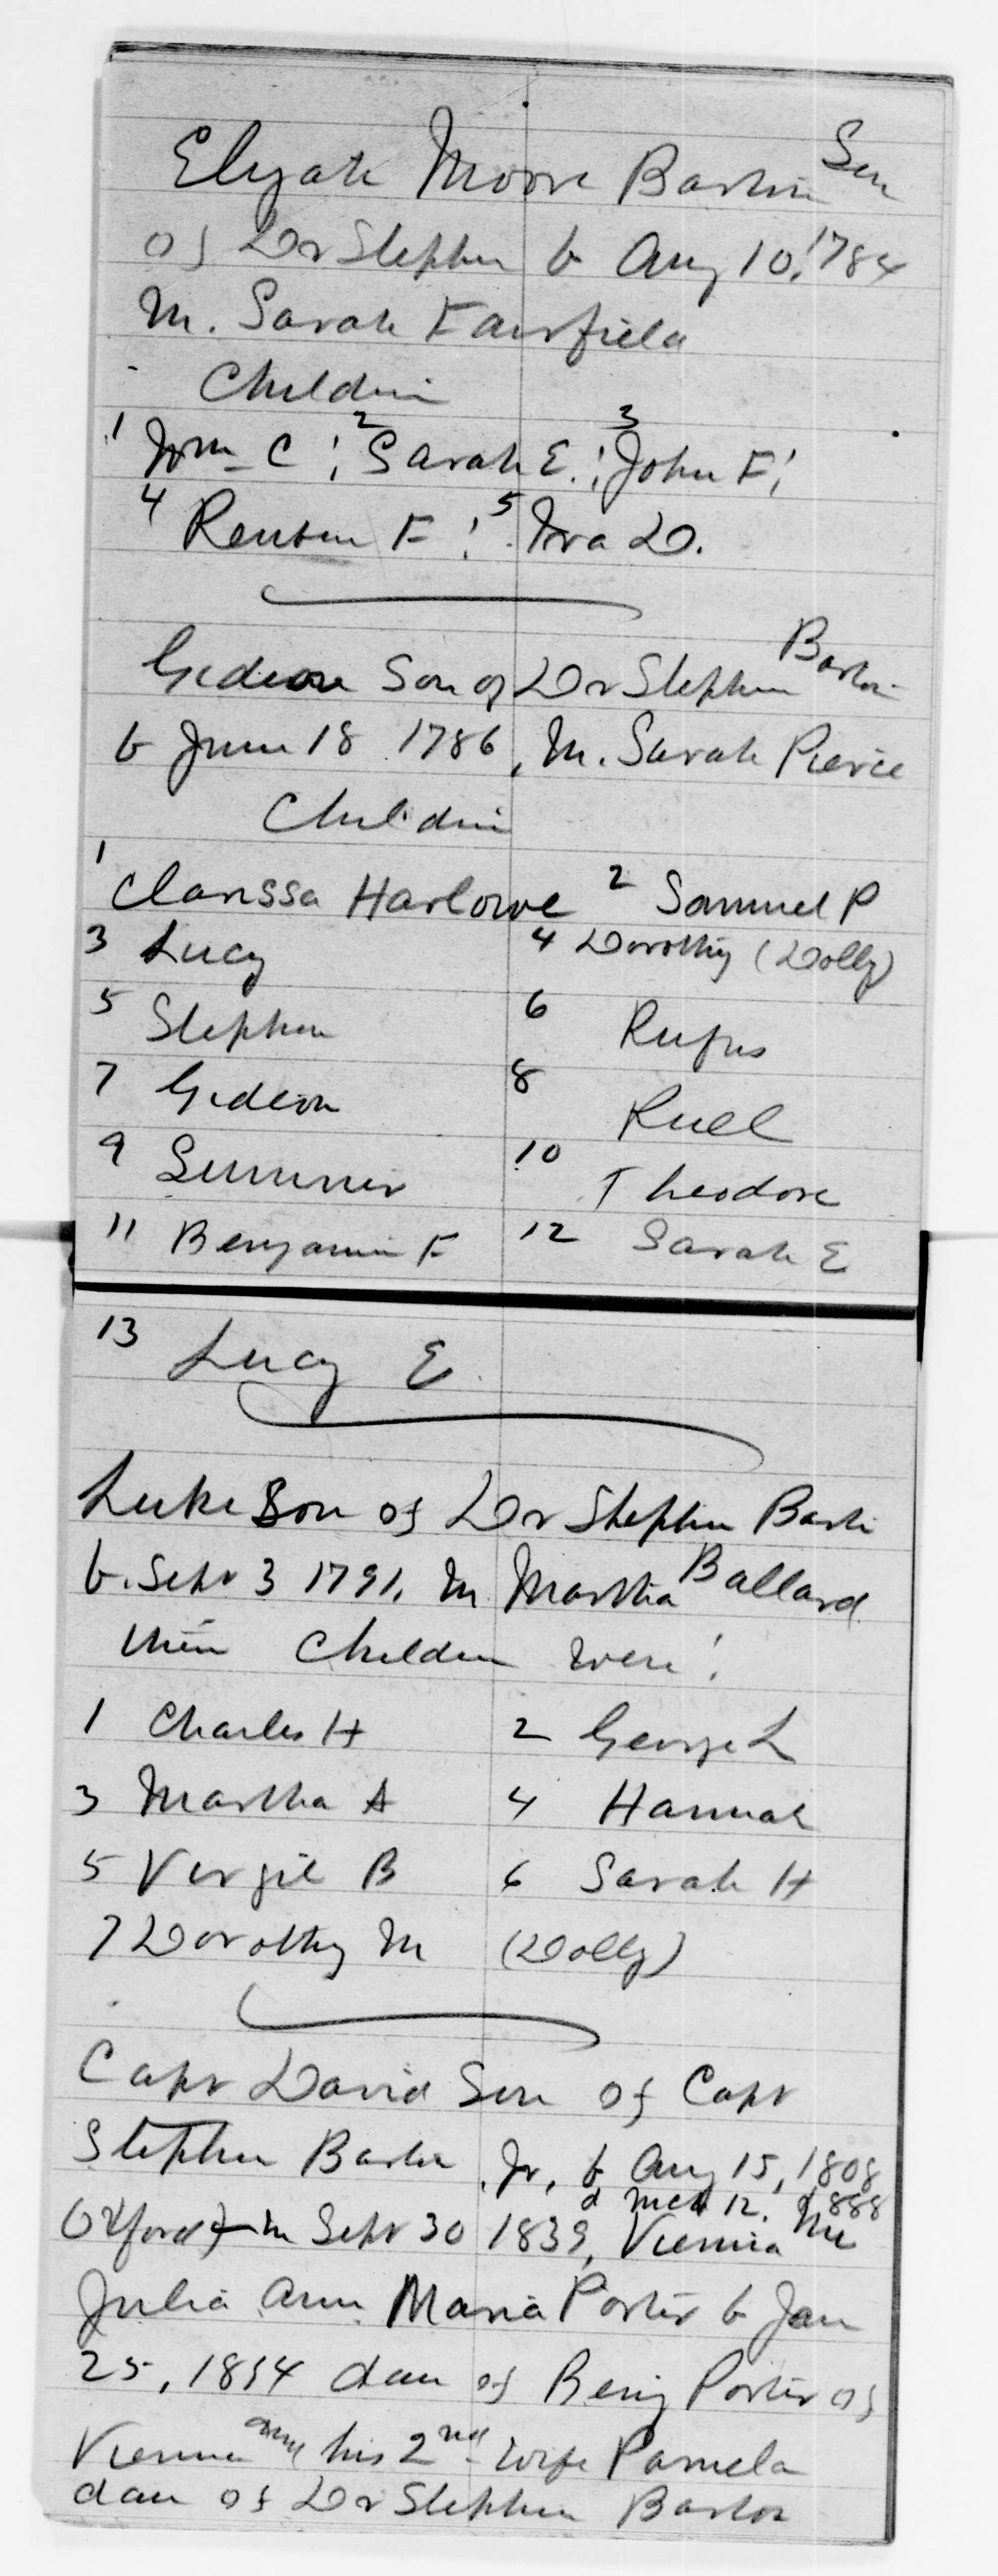 Elijah Moore Barton Son
of Dr Stephen b Aug 10, 1784
M. Sarah Fairfield
Children
1 Wm C; 2 Sarah E.; 3 John F;
4 Reuben F; 5 Ira D.
Gideon Son of Dr Stephen Barton
b June 18 1786, M. Sarah Pierce
Children
1 Clarissa Harlowe 2 Samuel P
3 Lucy 4 Dorothy (Dolly)
5 Stephen 6 Rufus
7 Gideon 8 Ruel
9 Sumner 10 Theodore
11 Benjamin F 12 Sarah E
13 Lucy E.
Luke Son of Dr Stephen Barton
b. Sept 3 1791. M Martha Ballard
their Children were:
1 Charles H 2 George L
3 Martha A 4 Hannah
5 Virgil B 6 Sarah H
7 Dorothy M (Dolly)
Capt David Son of Capt
Stephen Barton Jr, b Aug 15, 1808
d Mch 12, 1888
Oxford m Sept 30 1839, Vienna Me
Julia Ann Maria Porter b Jan
25, 1814 dau of Benj Porter of
Vienna and his 2nd wife Pamela
dau of Dr Stephen Barton